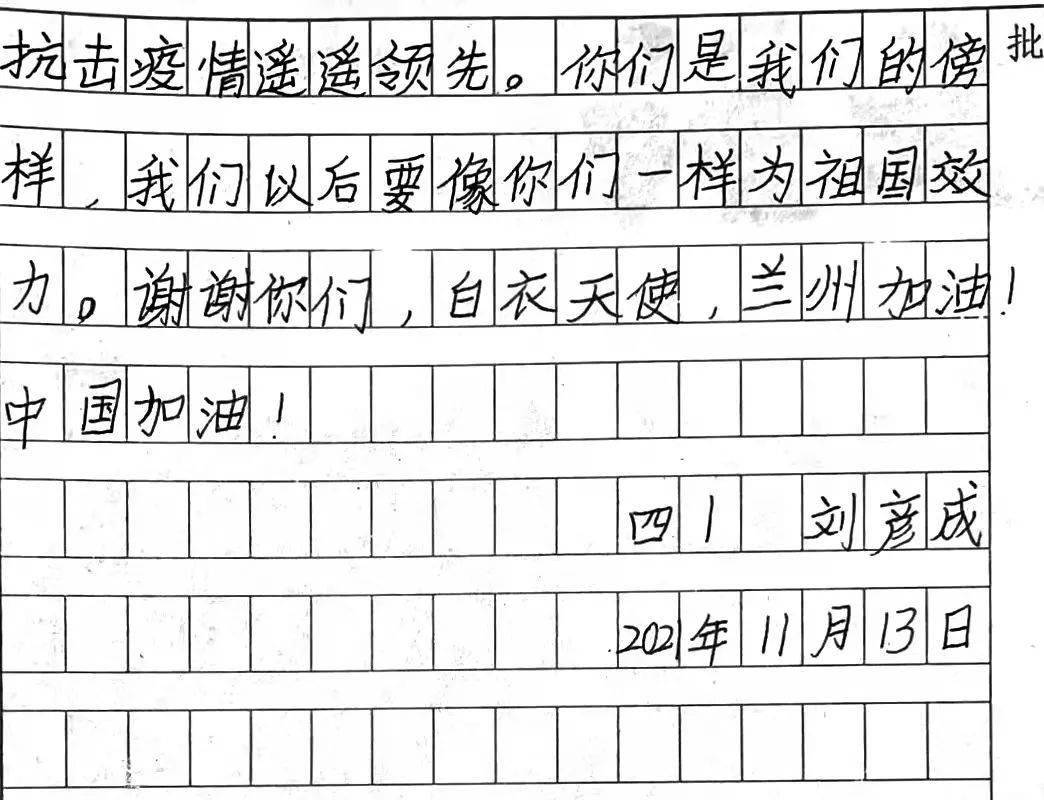 抗击疫情遥遥领先。你们是我们的傍
批
样，我们以后要像你们一样为祖国效
力。谢谢你们，白衣天使，兰州加油！
中国加油！
四1 刘彦成
2021年11月13日